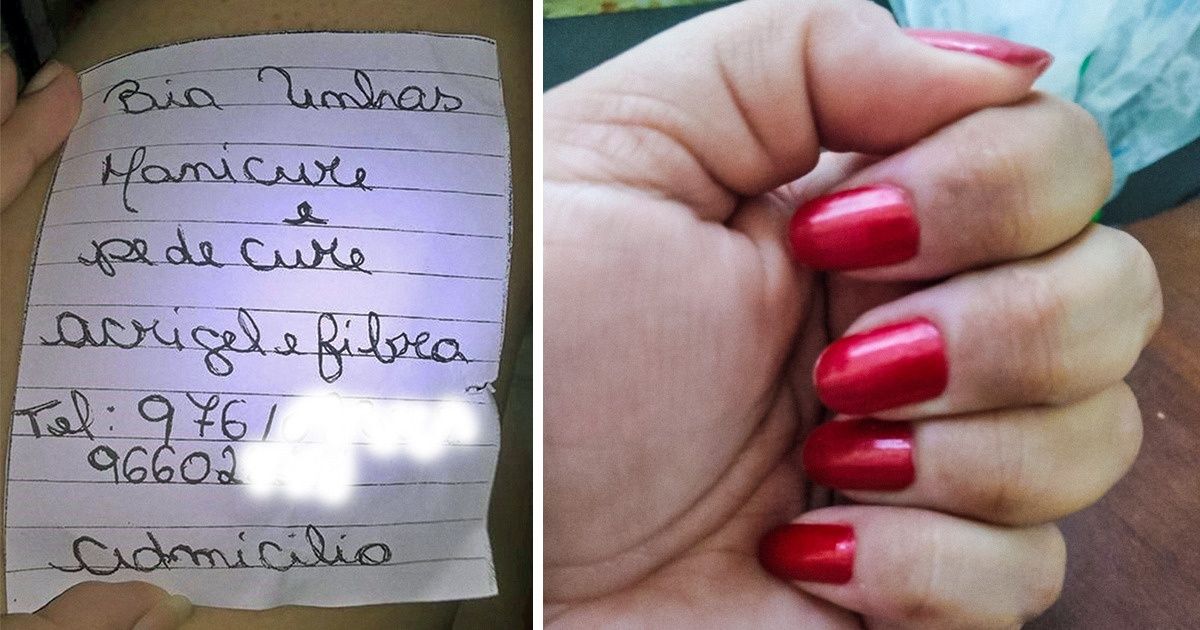 Bia Unhas
Manicure
e
pe de cure
acrigel e fibra
Tel: 976
96602
admicilio